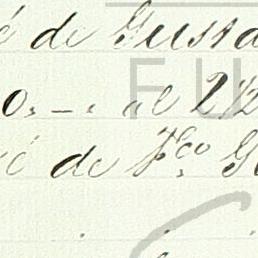 é de Gusta
o. — . al 2 1/2
é de Fco G